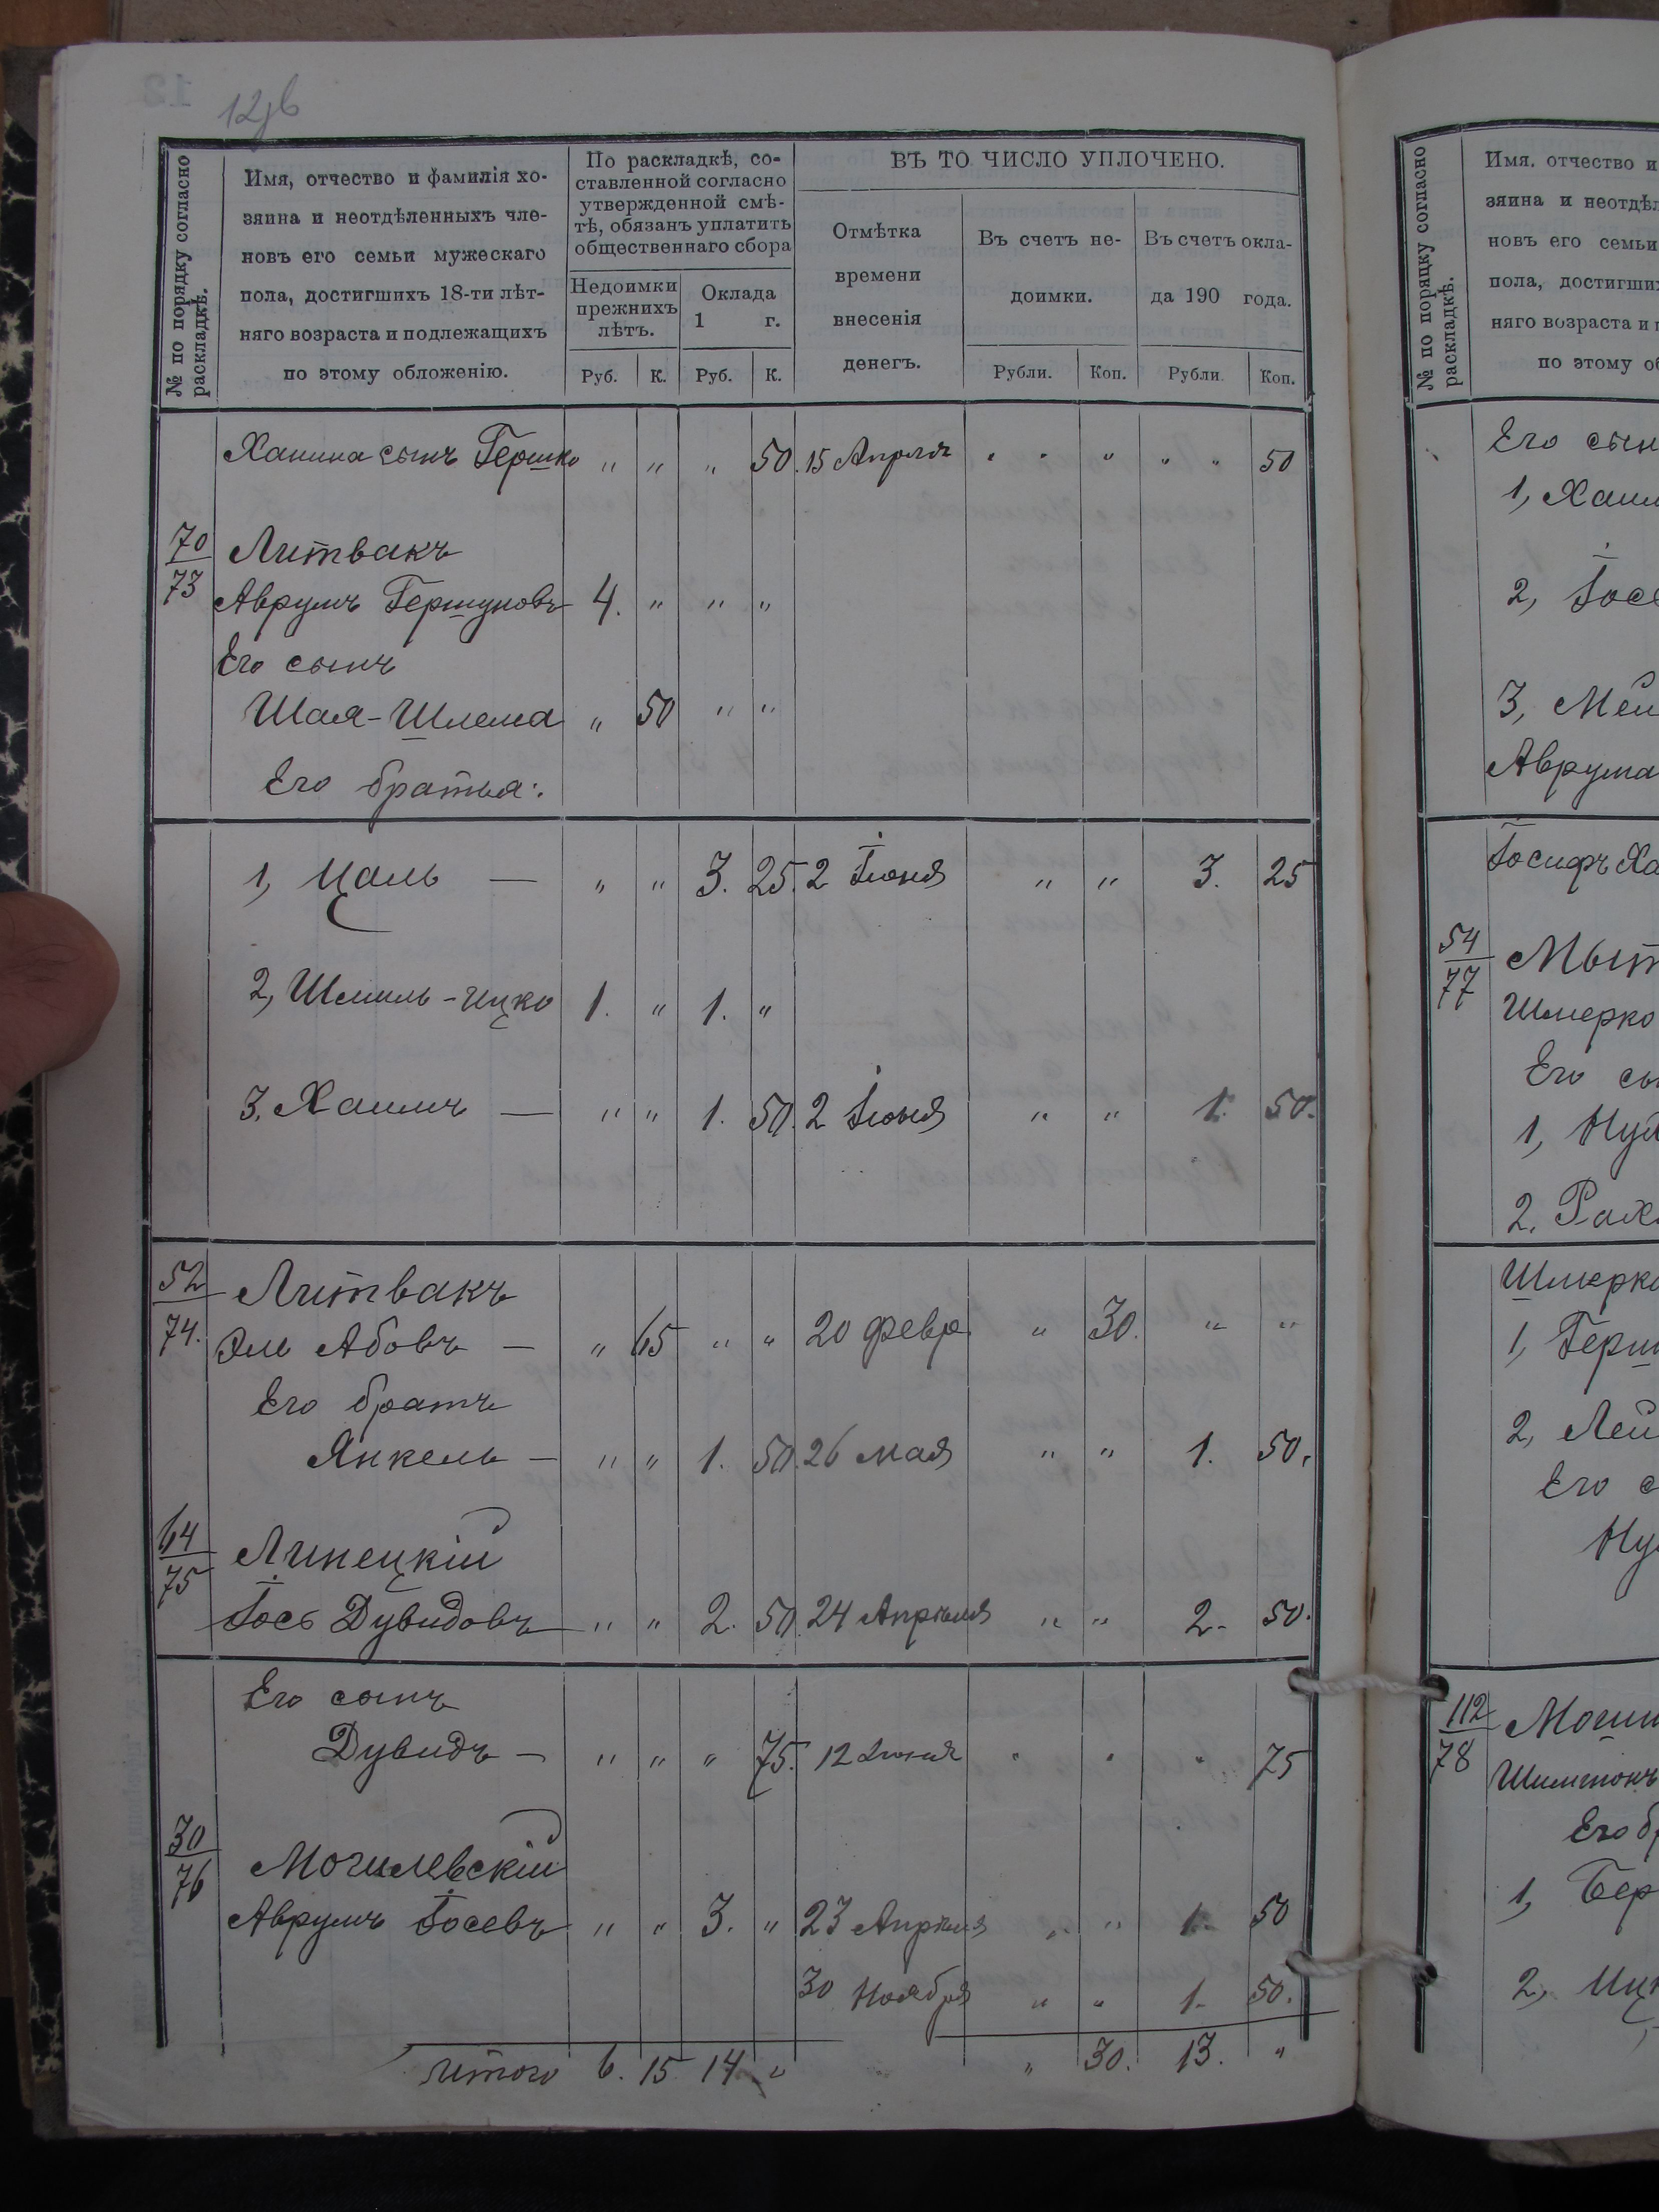 12 об
№ по порядку согласно раскладкѣ.
Имя, отчество и фамилія хо-
зяина и неотдѣленныхъ чле-
новъ его семьи мужескаго
пола, достигшихъ 18-ти лѣт-
няго возраста и подлежащихъ
по этому обложенію.
По раскладкѣ, со-
ставленной согласно
утвержденной смѣ-
тѣ, обязанъ уплатить
общественнаго сбора
Недоимки
прежнихъ
лѣтъ.
Оклада
1 г.
Руб. К. Руб. К.
ВЪ ТО ЧИСЛО УПЛОЧЕНО.
Отмѣтка
времени
внесенія
денегъ.
Въ счетъ не-
доимки.
Въ счетъ окла-
да 190 года.
Рубли. Коп. Рубли. Коп.
Ханина сынъ Гершко " " " 50. 15 Апрѣля " " " " " 50
70/73 Литвакъ
Аврумъ Гершуновъ 4. " " "
Его сынъ
Шая-Шлема " 50 " "
Его братья:
1, Цаль — " " 3. 25. 2 Іюня " " 3. 25
2, Шмиль-Ицко 1. " 1. "
3, Хаимъ — " " 1. 50. 2 Іюня " " 1. 50.
52/74. Литвакъ
Эль Абовъ — " 65 " " 20 февр. " 30. " "
Его братъ
Янкель — " " 1. 50. 26 мая " " 1. 50.
64/75 Линецкій
Іось Дувидовъ " " 2. 50. 24 Апрѣля " " 2. 50.
Его сынъ
Дувидъ — " " " 75. 12 Іюня " " " 75
30/76 Могилевскій
Аврумъ Іосевъ " " 3. " 23 Апрѣля " " 1. 50
30 Ноября " " 1. 50.
Итого 6. 15 14 " " 30. 13. "
№ по порядку согласно раскладкѣ.
Имя, отчество и
зяина и
новъ его семьи
пола,
няго возраста и
по этому
Его
1,
2,
3,
Аврума
Іосифъ
54/77
Шмерко
Его
1,
2.
Шмерко
1,
2,
Его
112/78
Его
1,
2,